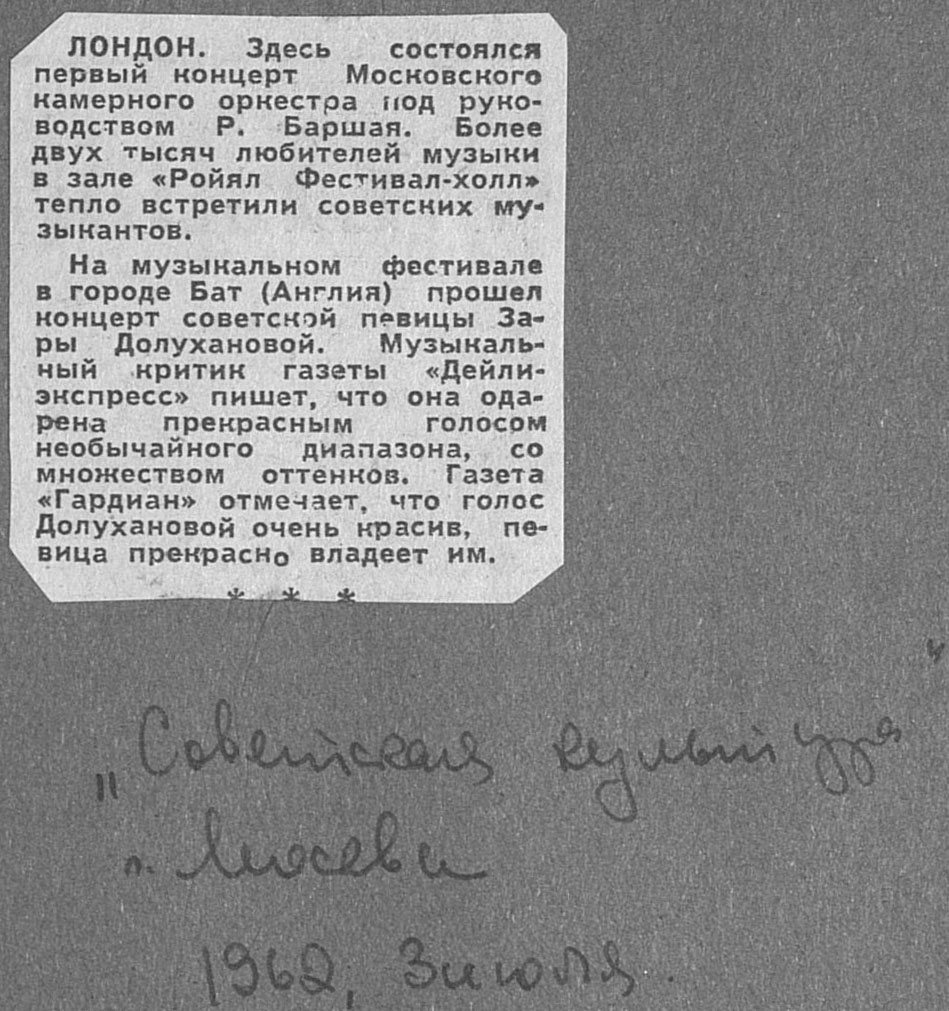 ЛОНДОН. Здесь состоялся
первый концерт Московского
камерного оркестра под руко-
водством Р. Баршая. Более
двух тысяч любителей музыки
в зале «Ройял Фестивал-холл»
тепло встретили советских му-
зыкантов.
На музыкальном фестивале
в городе Бат (Англия) прошел
концерт советской певицы За-
ры Долухановой. Музыкаль-
ный критик газеты «Дейли-
экспресс» пишет, что она ода-
рена прекрасным голосом
необычайного диапазона, со
множеством оттенков. Газета
«Гардиан» отмечает, что голос
Долухановой очень красив, пе-
вица прекрасно владеет им.
* * *
„Советская культура"
1962, 3 июля.